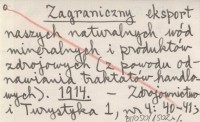 Zagraniczny eksport
naszych naturalnych wód
mineralnych i produktów
zdrojowych (z powodu od-
nawiania traktatów handlo-
wych). 1914. – Zdrojownictwo
i Turystyka 1, nr 4: 40-41;